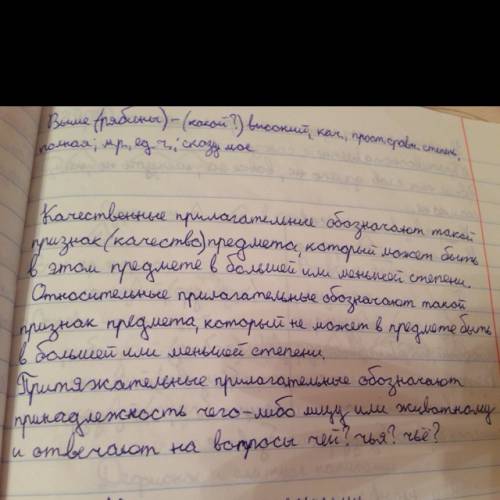 Выше (рябины) – (какой?) высокий, кач., прост. сравн. степень,
полная; м.р., ед.ч.; сказуемое
Качественные прилагательные обозначают такой
признак (качество) предмета, который может быть
в этом предмете в большей или меньшей степени.
Относительные прилагательные обозначают такой
признак предмета, который не может в предмете быть
в большей или меньшей степени.
Притяжательные прилагательные обозначают
принадлежность чего-либо лицу или животному
и отвечают на вопросы чей? чья? чьё?